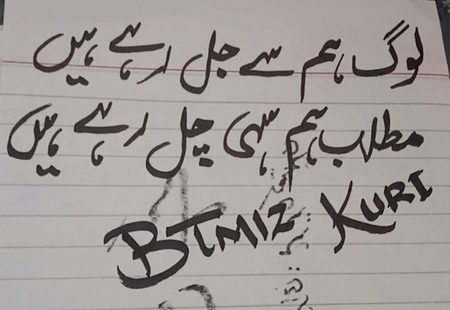 لوگ ہم سے جل رہے ہیں
مطلب ہم سہی چل رہے ہیں
BTMIZ KURI